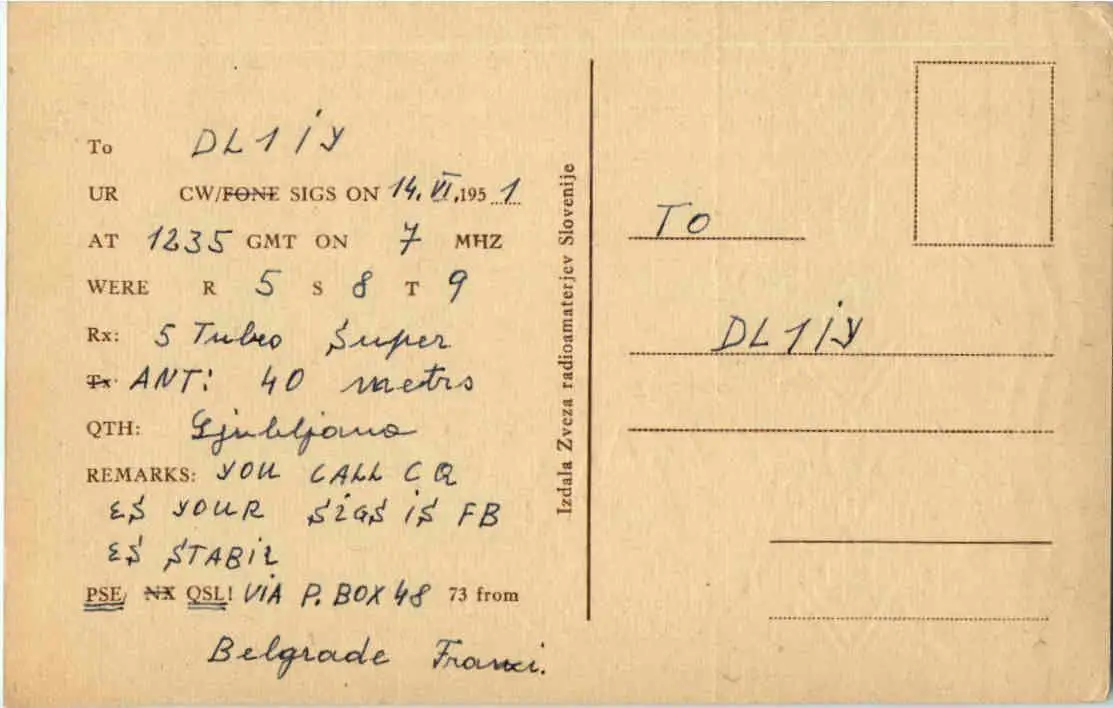 To DL1iY
UR CW/FONE SIGS ON 14. VI. 1951
AT 1235 GMT ON 7 MHZ
WERE R 5 S 8 T 9
Rx: 5 Tubes Super
Tx ANT: 40 metrs
QTH: Ljubljana
REMARKS: YOU CALL CQ
ES YOUR SIGS iS FB
ES STABiL
PSE/ NX QSL! ViA P. BOX 48 73 from
Belgrade Franci.
Izdala Zveza radioamaterjev Slovenije
TO
DL1iY